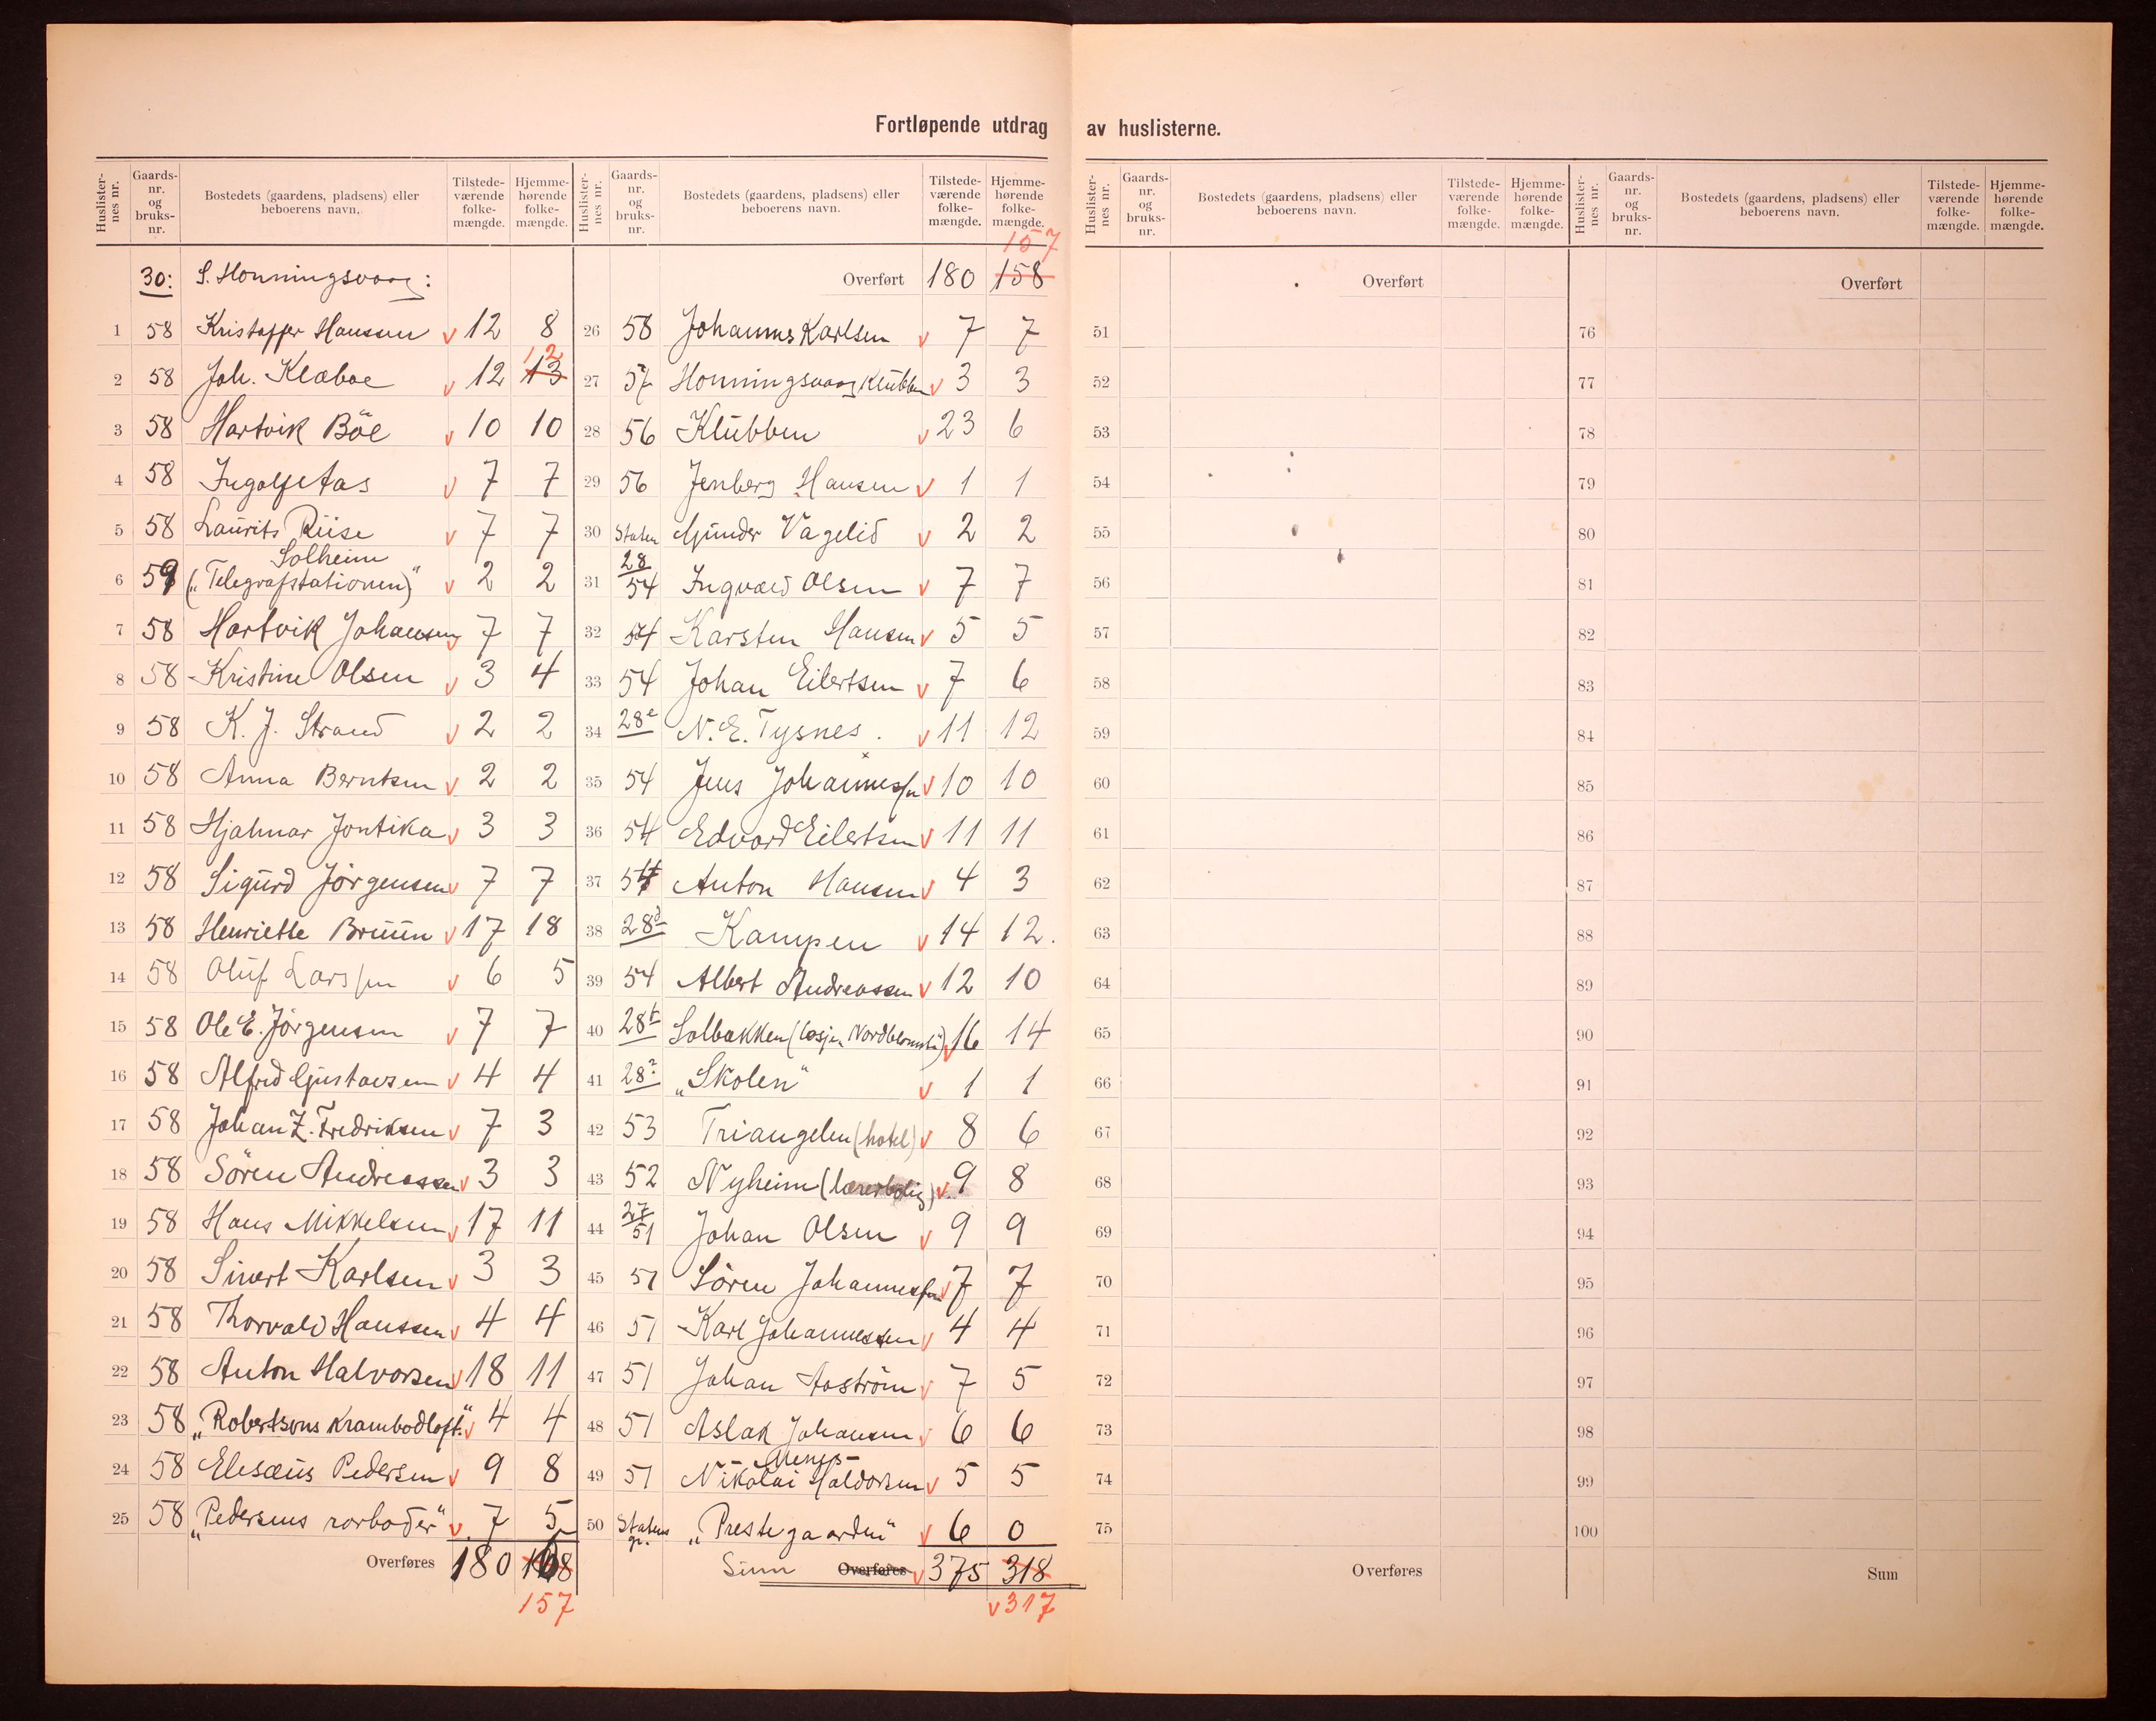 Fortløpende utdrag av huslisterne.
Huslister-nes nr. Gaards-nr. og bruks-nr. Bostedets (gaardens, pladsens) eller beboerens navn. Tilstede-værende folke-mængde. Hjemme-hørende folke-mængde.
30: S. Honningsvaag:
1 58 Kristoffer Hanssen v 12 8
2 58 Joh. Klæboe v 12 13 12
3 58 Hartvik Böe v 10 10
4 58 Ingolf Aas v 7 7
5 58 Laurits Riise v 7 7
Solheim
6 59 („Telegrafstationen)" v 2 2
7 58 Hartvik Johansen v 7 7
8 58 Kristine Olsen v 3 4
9 58 K. J. Strand v 2 2
10 58 Anna Berntsen v 2 2
11 58 Hjalmar Jontika v 3 3
12 58 Sigurd Jörgensen v 7 7
13 58 Henriette Bruun v 17 18
14 58 Oluf Larssen v 6 5
15 58 Ole E. Jörgensen v 7 7
16 58 Alfred Gustavsen v 4 4
17 58 Johan Z. Fredriksen v 7 3
18 58 Sören Andreassen v 3 3
19 58 Hans Mikkelsen v 17 11
20 58 Sivert Karlsen v 3 3
21 58 Thorvald Hanssen v 4 4
22 58 Anton Halvorsen v 18 11
23 58 „Robertsons Krambodloft." v 4 4
24 58 Elesæus Pedersen v 9 8
25 58 „Pedersens rorboder" v 7 5
Overføres 180
157
Huslister-nes nr. Gaards-nr. og bruks-nr. Bostedets (gaardens, pladsens) eller beboerens navn. Tilstede-værende folke-mængde. Hjemme-hørende folke-mængde.
157
Overført 180 158
26 58 Johannes Karlsen v 7 7
27 57 Honningsvaag Klubben v 3 3
28 56 Klubben v 23 6
29 56 Jenberg Hansen v 1 1
30 Staten Gunder Vagelid v 2 2
31 28/54 Ingvald Olsen v 7 7
32 54 Karsten Hansen v 5 5
33 54 Johan Eilertsen v 7 6
34 28e N. E. Tysnes. v 11 12
35 54 Jens Johannessen v 10 10
36 54 Edvard Eilertsen v 11 11
37 54 Anton Hansen v 4 3
38 28d Kampen v 14 12.
39 54 Albert Andreassen v 12 10
40 28 Solbakken (losje v 16 14
41 28 „Skolen" v 1 1
42 53 Triangelen (hotel) v 8 6
43 52 Nyheim (lærerbolig) v 9 8
44 27/51 Johan Olsen v 9 9
45 51 Sören Johannessen v 7 7
46 51 Karl Johannessen v 4 4
47 51 Johan Aaström v 7 5
48 51 Aslak Johansen v 6 6
49 51 Nikolai Haldorsen v 5 5
50 Statens gr. „Prestegaarden" v 6 0
Sum Overføres v 375 318
v 317
Huslister-nes nr. Gaards-nr. og bruks-nr. Bostedets (gaardens, pladsens) eller beboerens navn. Tilstede-værende folke-mængde. Hjemme-hørende folke-mængde.
Overført
51
52
53
54
55
56
57
58
59
60
61
62
63
64
65
66
67
68
69
70
71
72
73
74
75
Overføres
Huslister-nes nr. Gaards-nr. og bruks-nr. Bostedets (gaardens, pladsens) eller beboerens navn. Tilstede-værende folke-mængde. Hjemme-hørende folke-mængde.
Overført
76
77
78
79
80
81
82
83
84
85
86
87
88
89
90
91
92
93
94
95
96
97
98
99
100
Sum